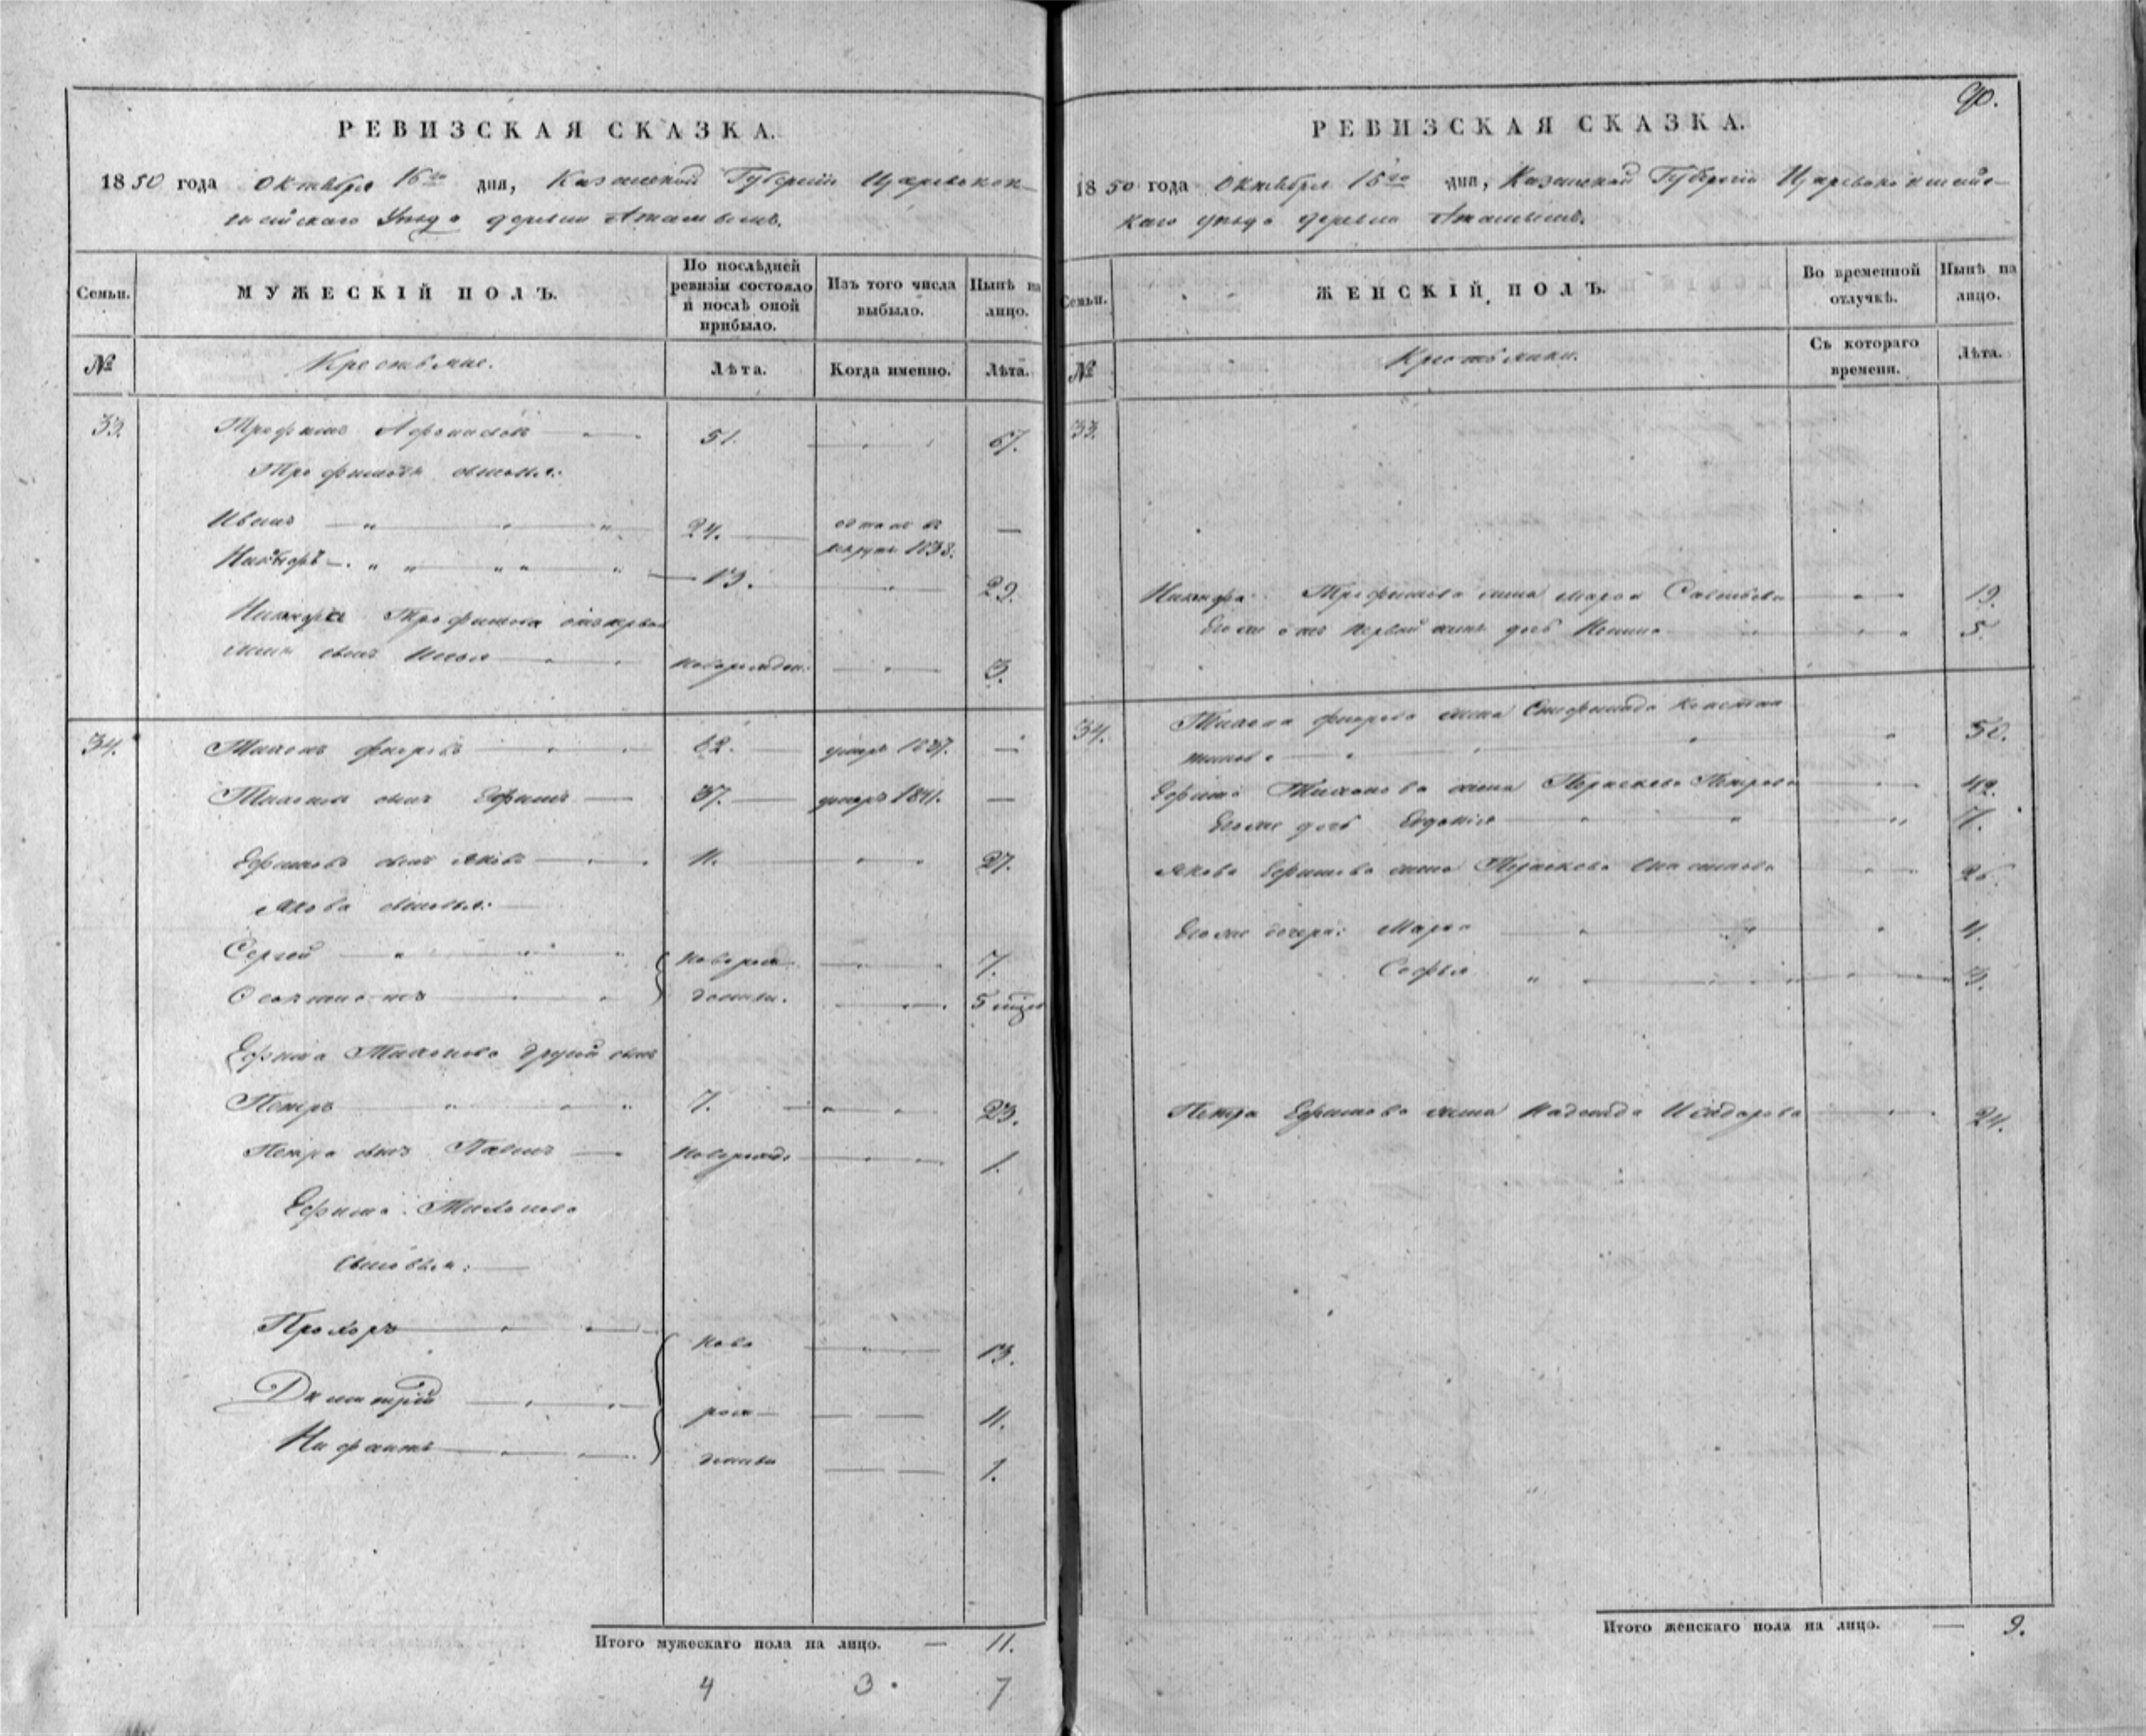 РЕВИЗСКАЯ СКАЗКА.
1850 года Октября 16го дня, Казанской Губерніи Царевокок-
шайскаго Уезда деревни
Семьи.
МУЖЕСКІЙ ПОЛЪ.
По послѣдней ревизіи состояло и послѣ оной прибыло.
Изъ того числа выбыло.
Нынѣ на лицо.
№
Крестьяне.
Лѣта.
Когда именно.
Лѣта.
33. Трофимъ Афонасьевъ 51. 67.
Трофимовы сыновья:
Иванъ 24. отдан въ рекруты 1838. —
Никифоръ 13. 29.
Трофимова отъ первой
жены сынъ новорожден. 3.
34. Тихонъ 62. умеръ 1837. —
Тихона сынъ Ефимъ 37. умеръ 1841. —
Ефимовъ сынъ Яковъ 11. 27.
Якова сыновья:
Сергей новорож- 7.
денны. 5 мѣся
Ефима Тихонова другой сынъ
Петръ 7. 23.
Петра сынъ Павелъ новорожд. 1.
Ефима Тихонова
сыновья:
Прохоръ ново 13.
Дмитрій рож- 11.
Нифантъ денны 1.
Итого мужескаго пола на лицо. — 11.
4 3. 7
90.
РЕВИЗСКАЯ СКАЗКА.
1850 года Октября 16го дня, Казанской Губерніи Царевококшайс-
каго уезда деревни
Семьи.
ЖЕНСКІЙ ПОЛЪ.
Во временной отлучкѣ.
Нынѣ на лицо.
№
Крестьянки.
Съ котораго времени.
Лѣта.
33.
Трофимова жена Марья Савельева 19.
Его же отъ первой жены дочь 5.
34. Тихона жена Константи
нова 50.
Ефима Тихонова жена Прасковья Петрова 42.
Его же дочь Евдокія
Якова Ефимова жена Прасковья
Его же дочери: Марья
Софья 3.
Петра Ефимова жена Надежда Исидорова 24.
Итого женскаго пола на лицо. — 9.